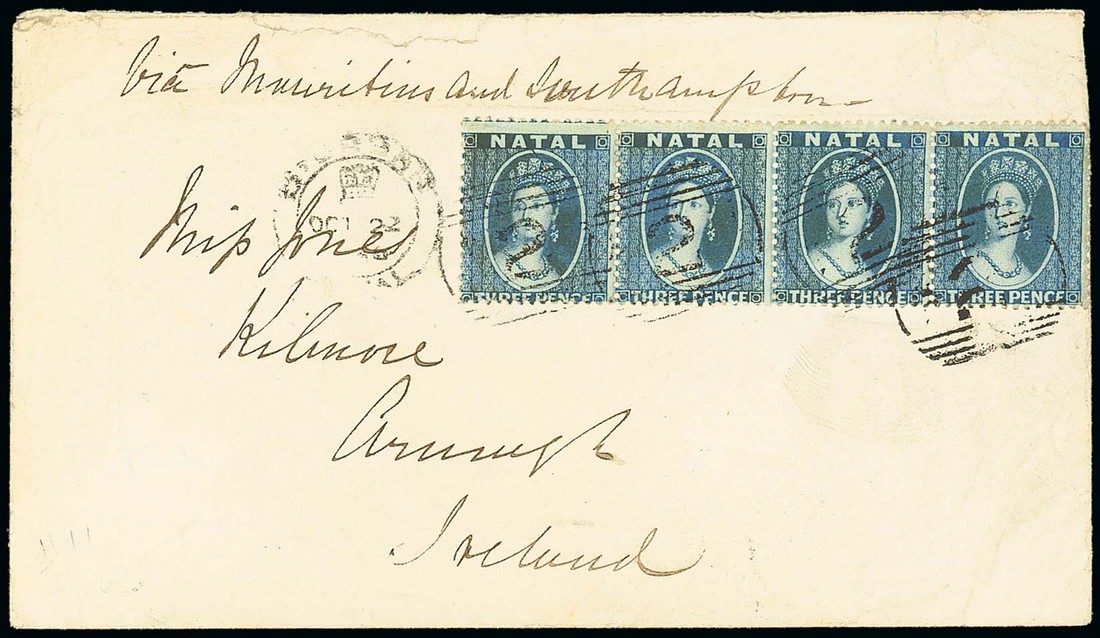 Via Mauritius and Southampton
NATAL NATAL NATAL NATAL
OCT 22
2 2 2
THREE PENCE THREE PENCE THREE PENCE THREE PENCE
Miss Jones
Kilmore
Armagh
Ireland